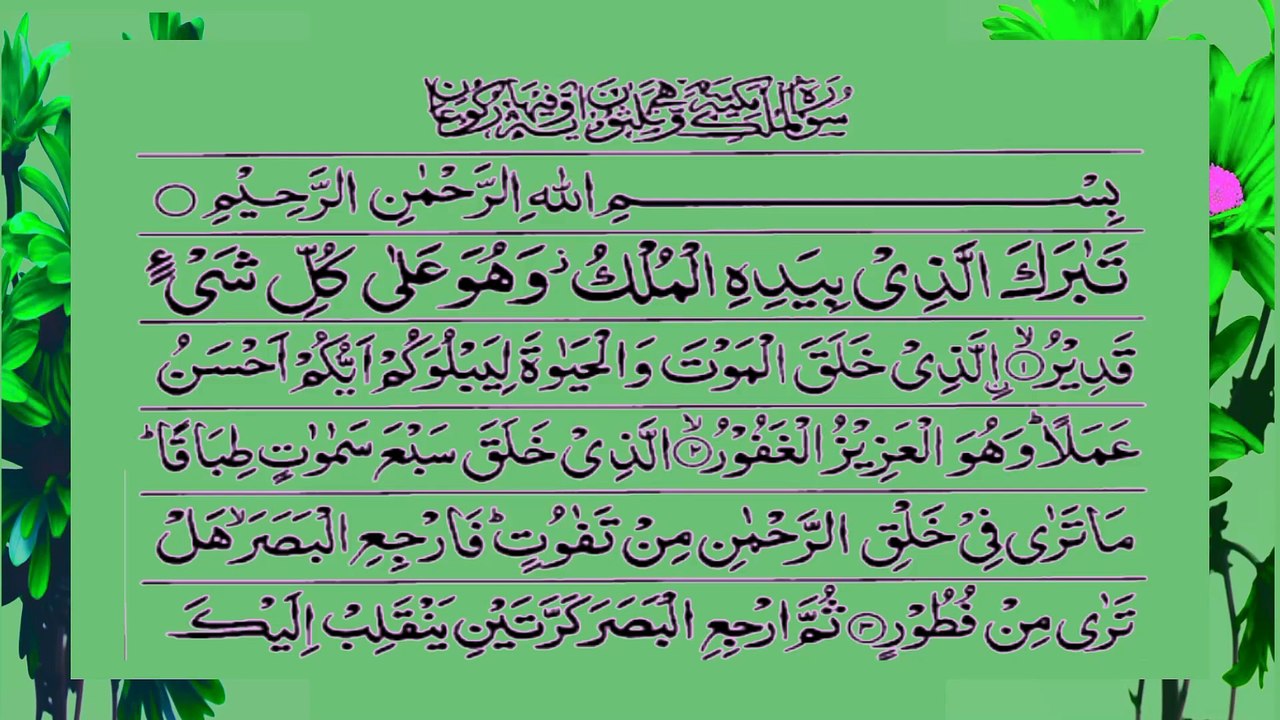 سورة الملك مكية وهي ثلثون اية وفيها ركوعان
بِسْمِ اللهِ الرَّحْمٰنِ الرَّحِيْمِ ○
تَبٰرَكَ الَّذِىْ بِيَدِهِ الْمُلْكُ ز وَهُوَ عَلٰى كُلِّ شَىْءٍ
قَدِيْرُ ۙ﴿۱﴾ اۨلَّذِىْ خَلَقَ الْمَوْتَ وَالْحَيٰوةَ لِيَبْلُوَكُمْ اَيُّكُمْ اَحْسَنُ
عَمَلًا ؕ وَهُوَ الْعَزِيْزُ الْغَفُوْرُ ۙ﴿۲﴾ الَّذِىْ خَلَقَ سَبْعَ سَمٰوٰتٍ طِبَاقًا ؕ
مَا تَرٰى فِىْ خَلْقِ الرَّحْمٰنِ مِنْ تَفٰوُتٍ ؕ فَارْجِعِ الْبَصَرَ ۙ هَلْ
تَرٰى مِنْ فُطُوْرٍ ﴿۳﴾ ثُمَّ ارْجِعِ الْبَصَرَ كَرَّتَيْنِ يَنْقَلِبْ اِلَيْكَ